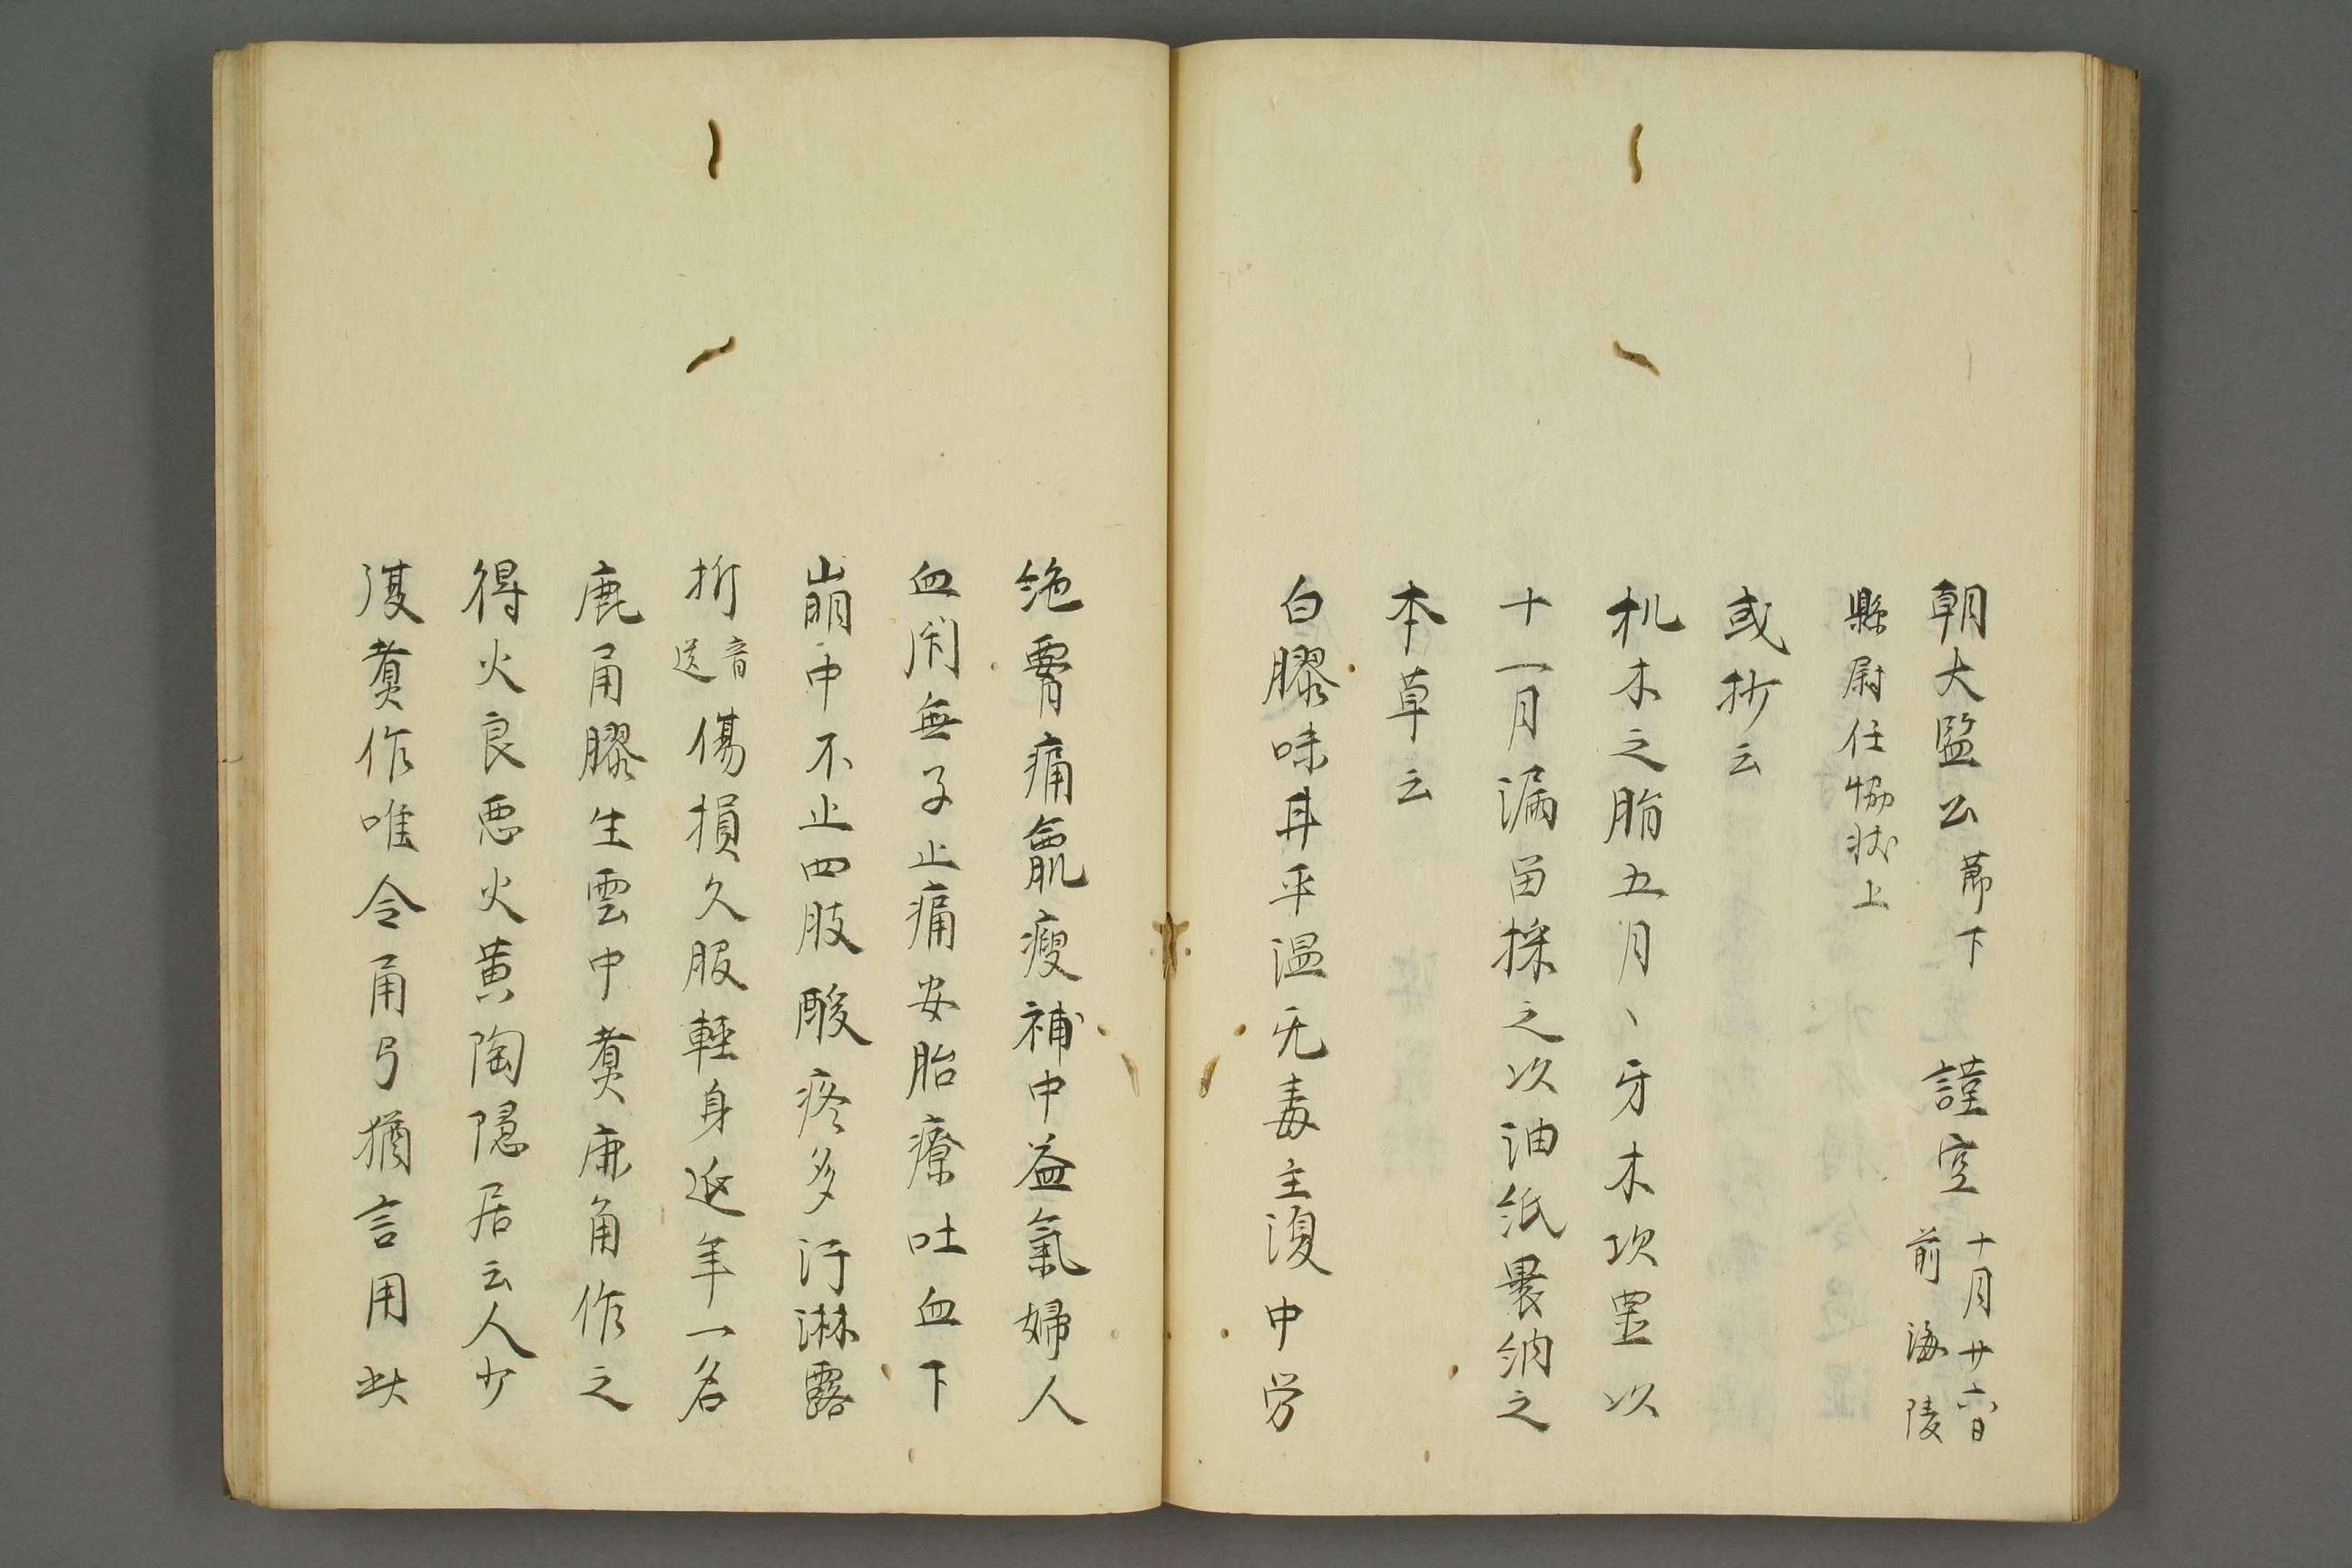 朝大監公　節下　謹空　十月廿六日
前海陵
縣尉任恊状上
或抄云
机木之脂五月〻牙木次罡以
十一月漏留採之以油紙褁納之
本草云
白膠味甘平温无毒主澓中労
絶𦝫痛羸瘦補中益氣婦人
血閇無子止痛安胎療吐血下
崩中不止四肢酸疼多汗淋露
折音送傷損久服軽身延年一名
鹿角膠生雲中煑鹿角作之
得火良悪火黄陶隠居云人少
復煑作唯令角弓猶言用此